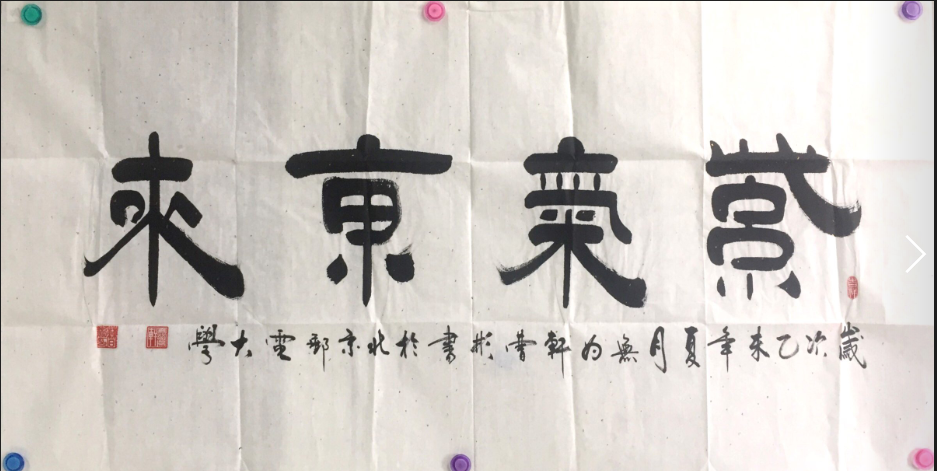 紫氣東來
歲次乙未年夏月無为軒曹彬書於北京郵電大學